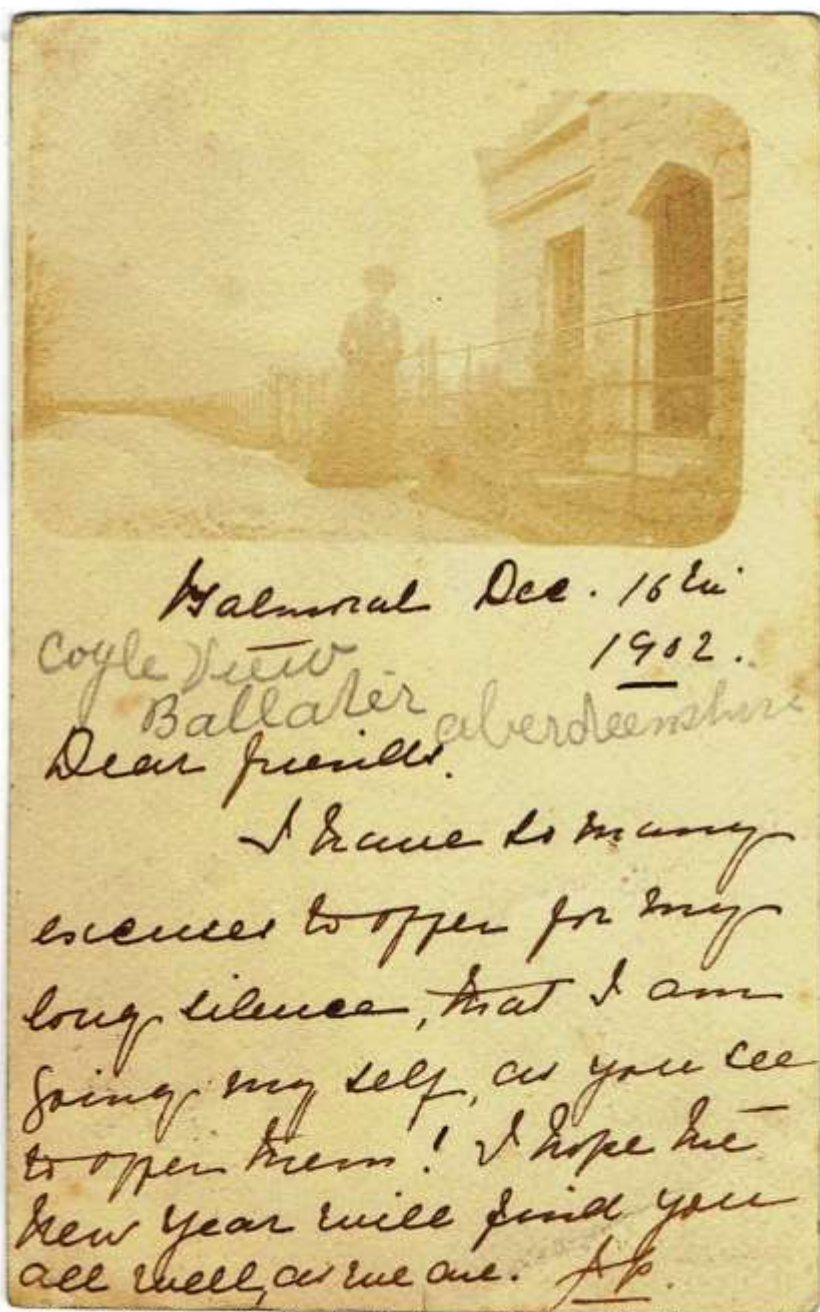 Balmoral Dec. 16th
1902.
Coyle View
Ballater aberdeenshire
Dear friends.
I have so many
excuses to offer for my
long silence, that I am
going my self, as you see
to offer them! I hope the
New Year will find you
all well, as we are.